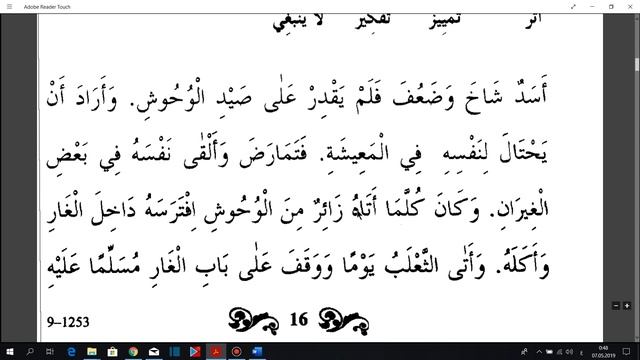 Adobe Reader Touch
أثر تمييز تفكير لا ينبغي
أَسَدٌ شَاخَ وَضَعُفَ فَلَمْ يَقْدِرْ عَلٰى صَيْدِ الْوُحُوشِ. وَأَرَادَ أَنْ
يَحْتَالَ لِنَفْسِهِ فِي الْمَعِيشَةِ. فَتَمَارَضَ وَأَلْقٰى نَفْسَهُ فِي بَعْضِ
الْغِيرَانِ. وَكَانَ كُلَّمَا أَتَاهُ زَائِرٌ مِنَ الْوُحُوشِ اِفْتَرَسَهُ دَاخِلَ الْغَارِ
وَأَكَلَهُ. وَأَتٰى الثَّعْلَبُ يَوْمًا وَوَقَفَ عَلٰى بَابِ الْغَارِ مُسَلِّمًا عَلَيْهِ
16
9–1253
0:48
07.05.2019